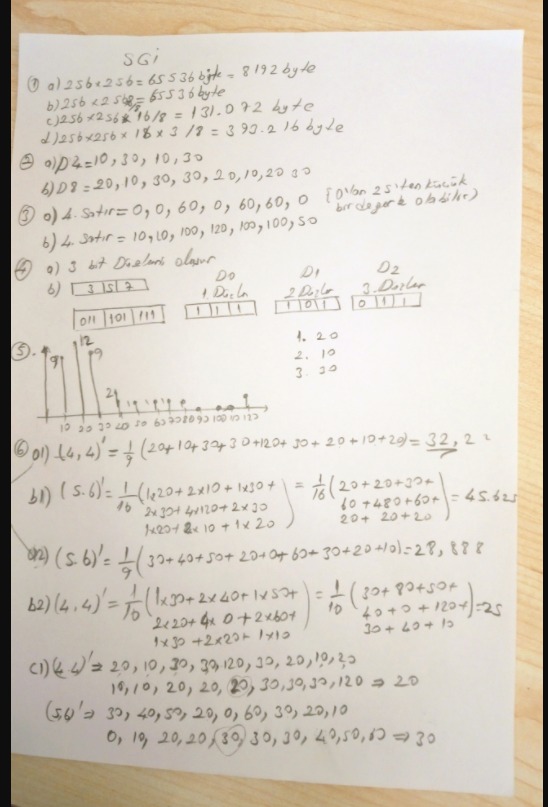 SGİ
① a) 256×256 = 65536 bite = 8192 byte
b) 256×256 = 65536 byte
c) 256×256× 16/8 = 131.072 byte
d) 256×256× 16 × 3 /8 = 393.216 byte
② a) D4=10, 30, 10, 30
b) D8 = 20, 10, 30, 30, 20, 10, 20 30
③ a) 4. satır = 0, 0, 60, 0, 60, 60, 0 (0'lar 25'ten küçük
bir değer de olabilir)
b) 4. satır = 10, 20, 100, 120, 100, 100, 50
④ a) 3 bit Düzlemi oluşur
b) 3 5 7
D0 D1 D2
1. Düzlem 2. Düzlem 3. Düzlem
011 101 111 1 1 1 1 0 1 0 1 1
1. 20
2. 10
3. 30
⑤.
9 12 9 2
10 20 30 40 50 60 70 80 90 100 110 120
⑥ a1) (4,4)' = 1/9 (20+10+30+30+120+30+20+10+20) = 32,2
b1) (5.6)' = 1/16 (1x20+2x10+1x30+ = 1/16 (20+20+30+
2x30+4x120+2x30 60+480+60+ ) = 45.625
1x20+2x10+1x20) 20+20+20
a2) (5.6)' = 1/9 (30+40+50+20+0+60+30+20+10) = 28,888
b2) (4,4)' = 1/10 (1x30+2x40+1x50+ = 1/10 (30+80+50+
2x20+4x0+2x60+ 40+0+120+ ) = 25
1x30+2x20+1x10 30+40+10
c1) (4.4)' ⇒ 20, 10, 30, 30, 120, 30, 20, 10, 20
10, 10, 20, 20, 20, 30, 30, 30, 120 ⇒ 20
(5,6)' ⇒ 30, 40, 50, 20, 0, 60, 30, 20, 10
0, 10, 20, 20, 30, 30, 30, 40, 50, 60 ⇒ 30